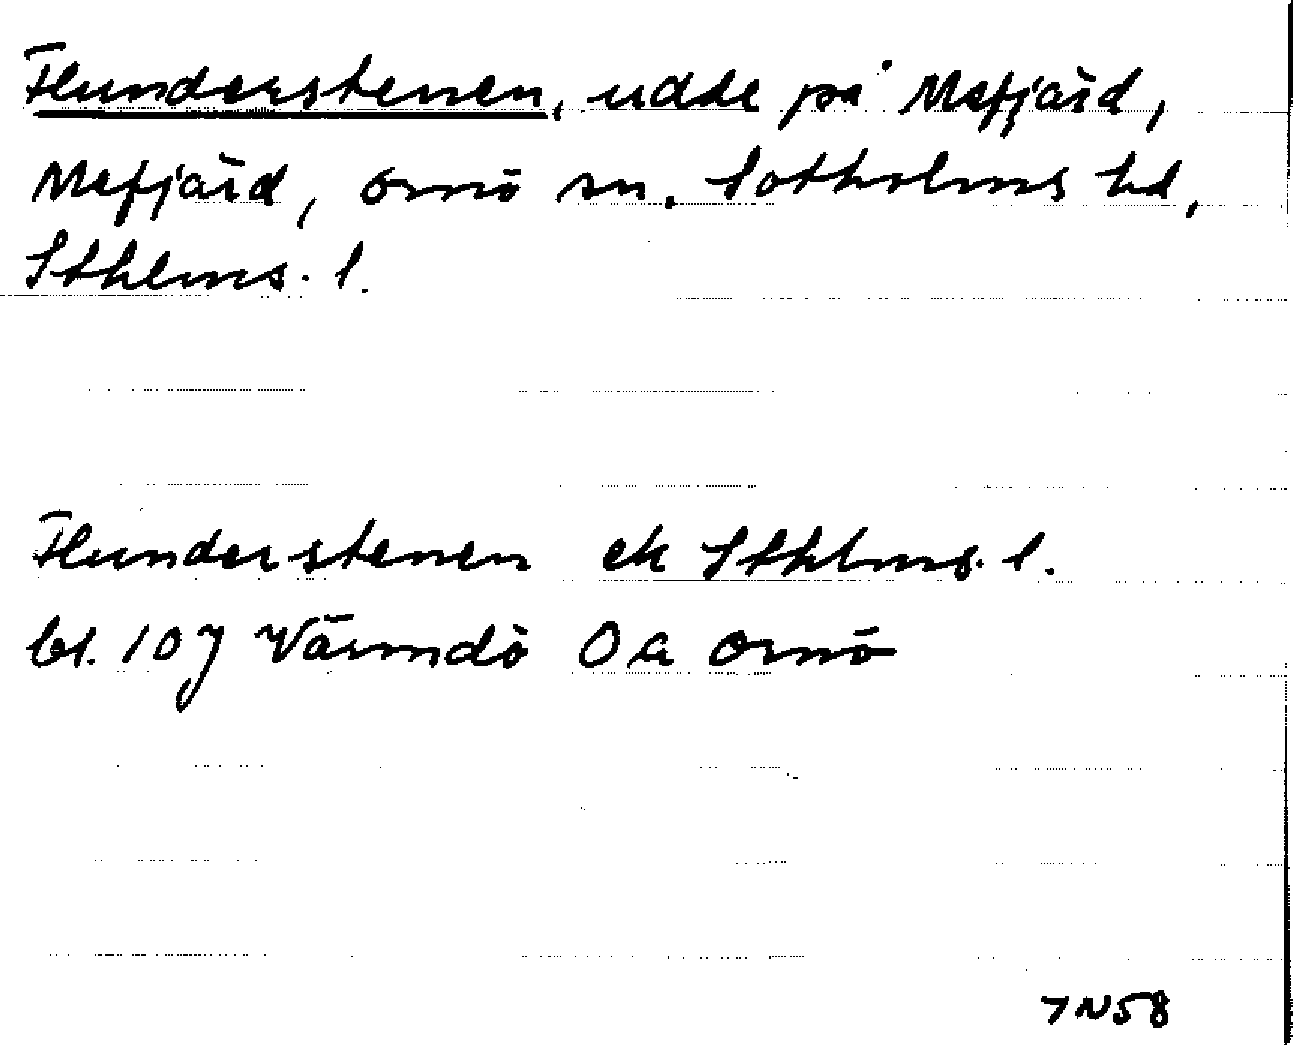 Flunderstenen, udde på Mefjärd,
Mefjärd, Ornö sn. Sotholms hd,
Sthlms. l.
Flunderstenen ek Sthlms. l.
bl. 10 J Värmdö Oa Ornö
7 N 58